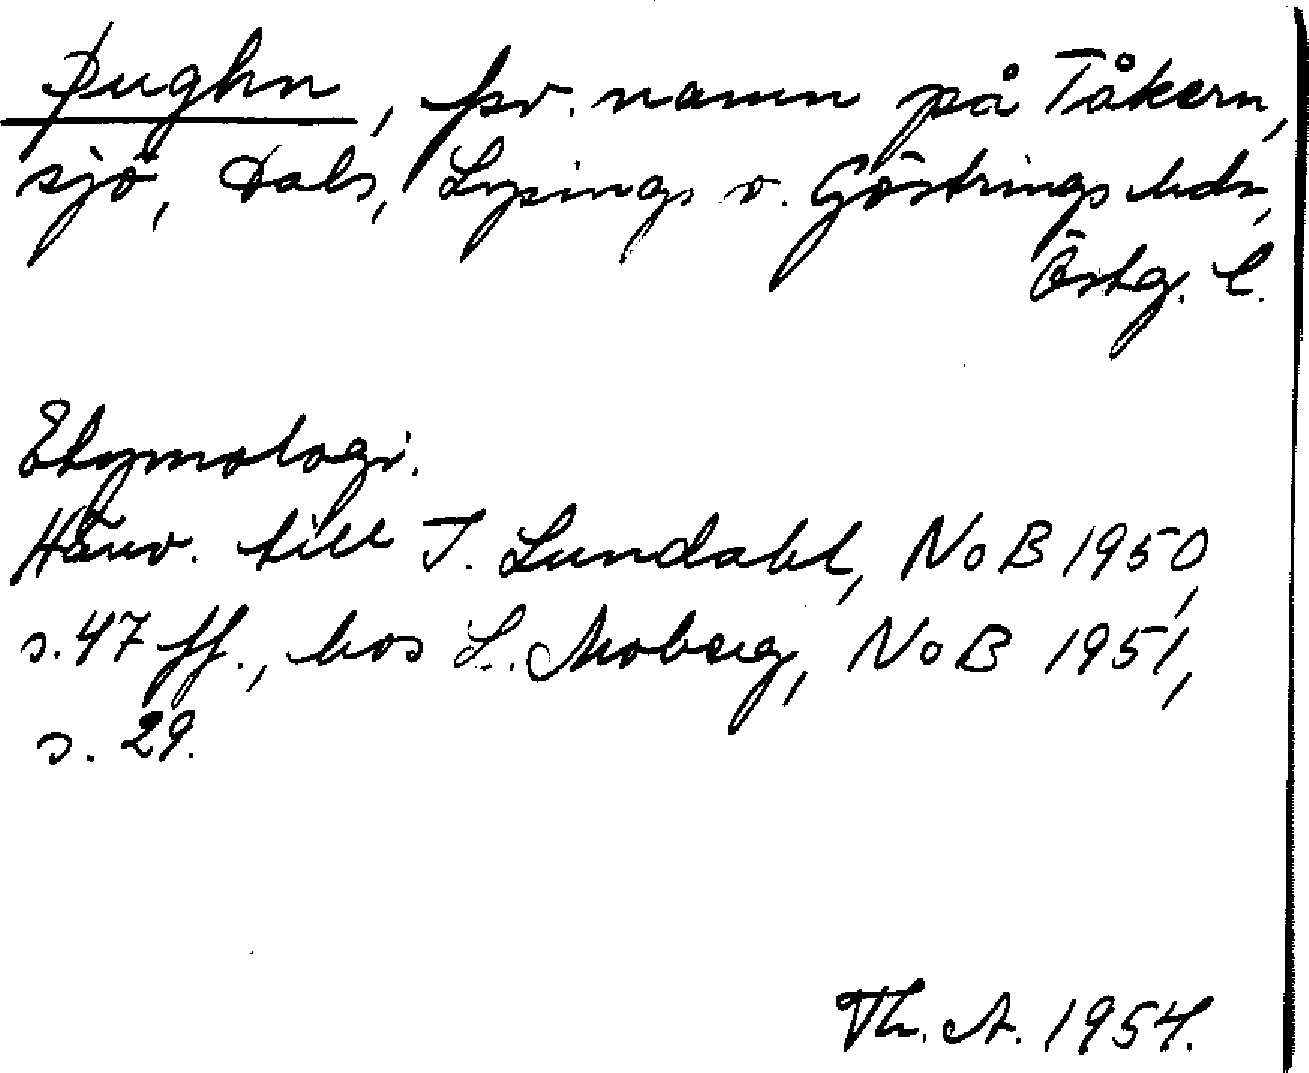 Þughn, fsv. namn på Tåkern,
sjö, Dals, Lysings o. Göstrings hdr,
Östg. l.
Etymologi.
Hänv. till I. Lundahl, NoB 1950,
s. 47 ff., hos L. Moberg, NoB 1951,
s. 29.
Th. A. 1954.